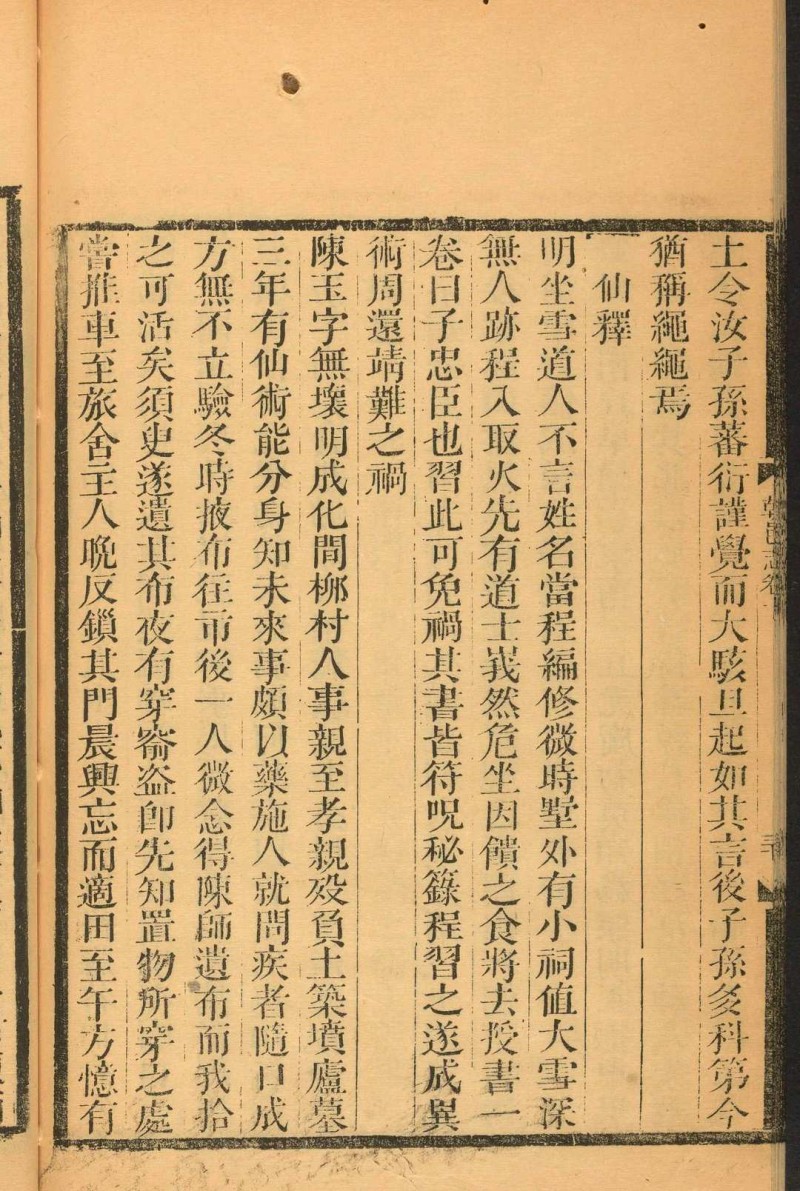 土令汝子孫蕃衍謹覺而大駭旦起如其言後子孫多科第今
猶稱繩繩焉
仙釋
明坐雪道人不言姓名當程編修微時墅外有小祠值大雪深
無人跡程入取火先有道士峩然危坐因饋之食將去授書一
卷曰子忠臣也習此可免禍其書皆符呪秘籙程習之遂成異
術周還靖難之禍
陳玉字無壞明成化間桞村人事親至孝親歿負土築墳廬墓
三年有仙術能分身知未來事頗以藥施人就問疾者隨口成
方無不立驗冬時掖布往市後一人微念得陳師遺布而我拾
之可活矣須臾遂遺其布夜有穿窬盜卽先知置物所穿之處
嘗推車至旅舍主人晩反鎖其門晨興忘而適田至午方憶有
朝邑志卷